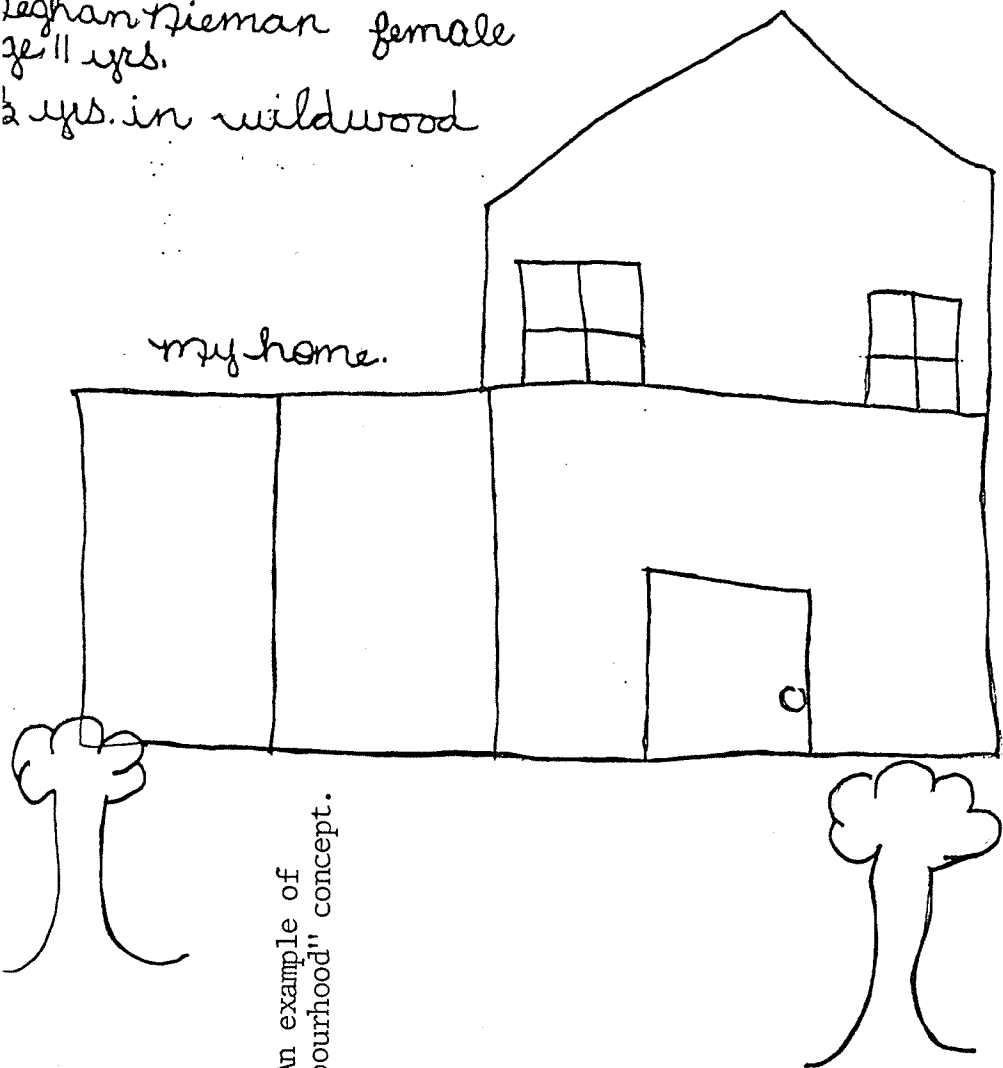 eghan Nieman female
ge 11 yrs.
½ yrs. in wildwood
my home.
An example of
bourhood" concept.